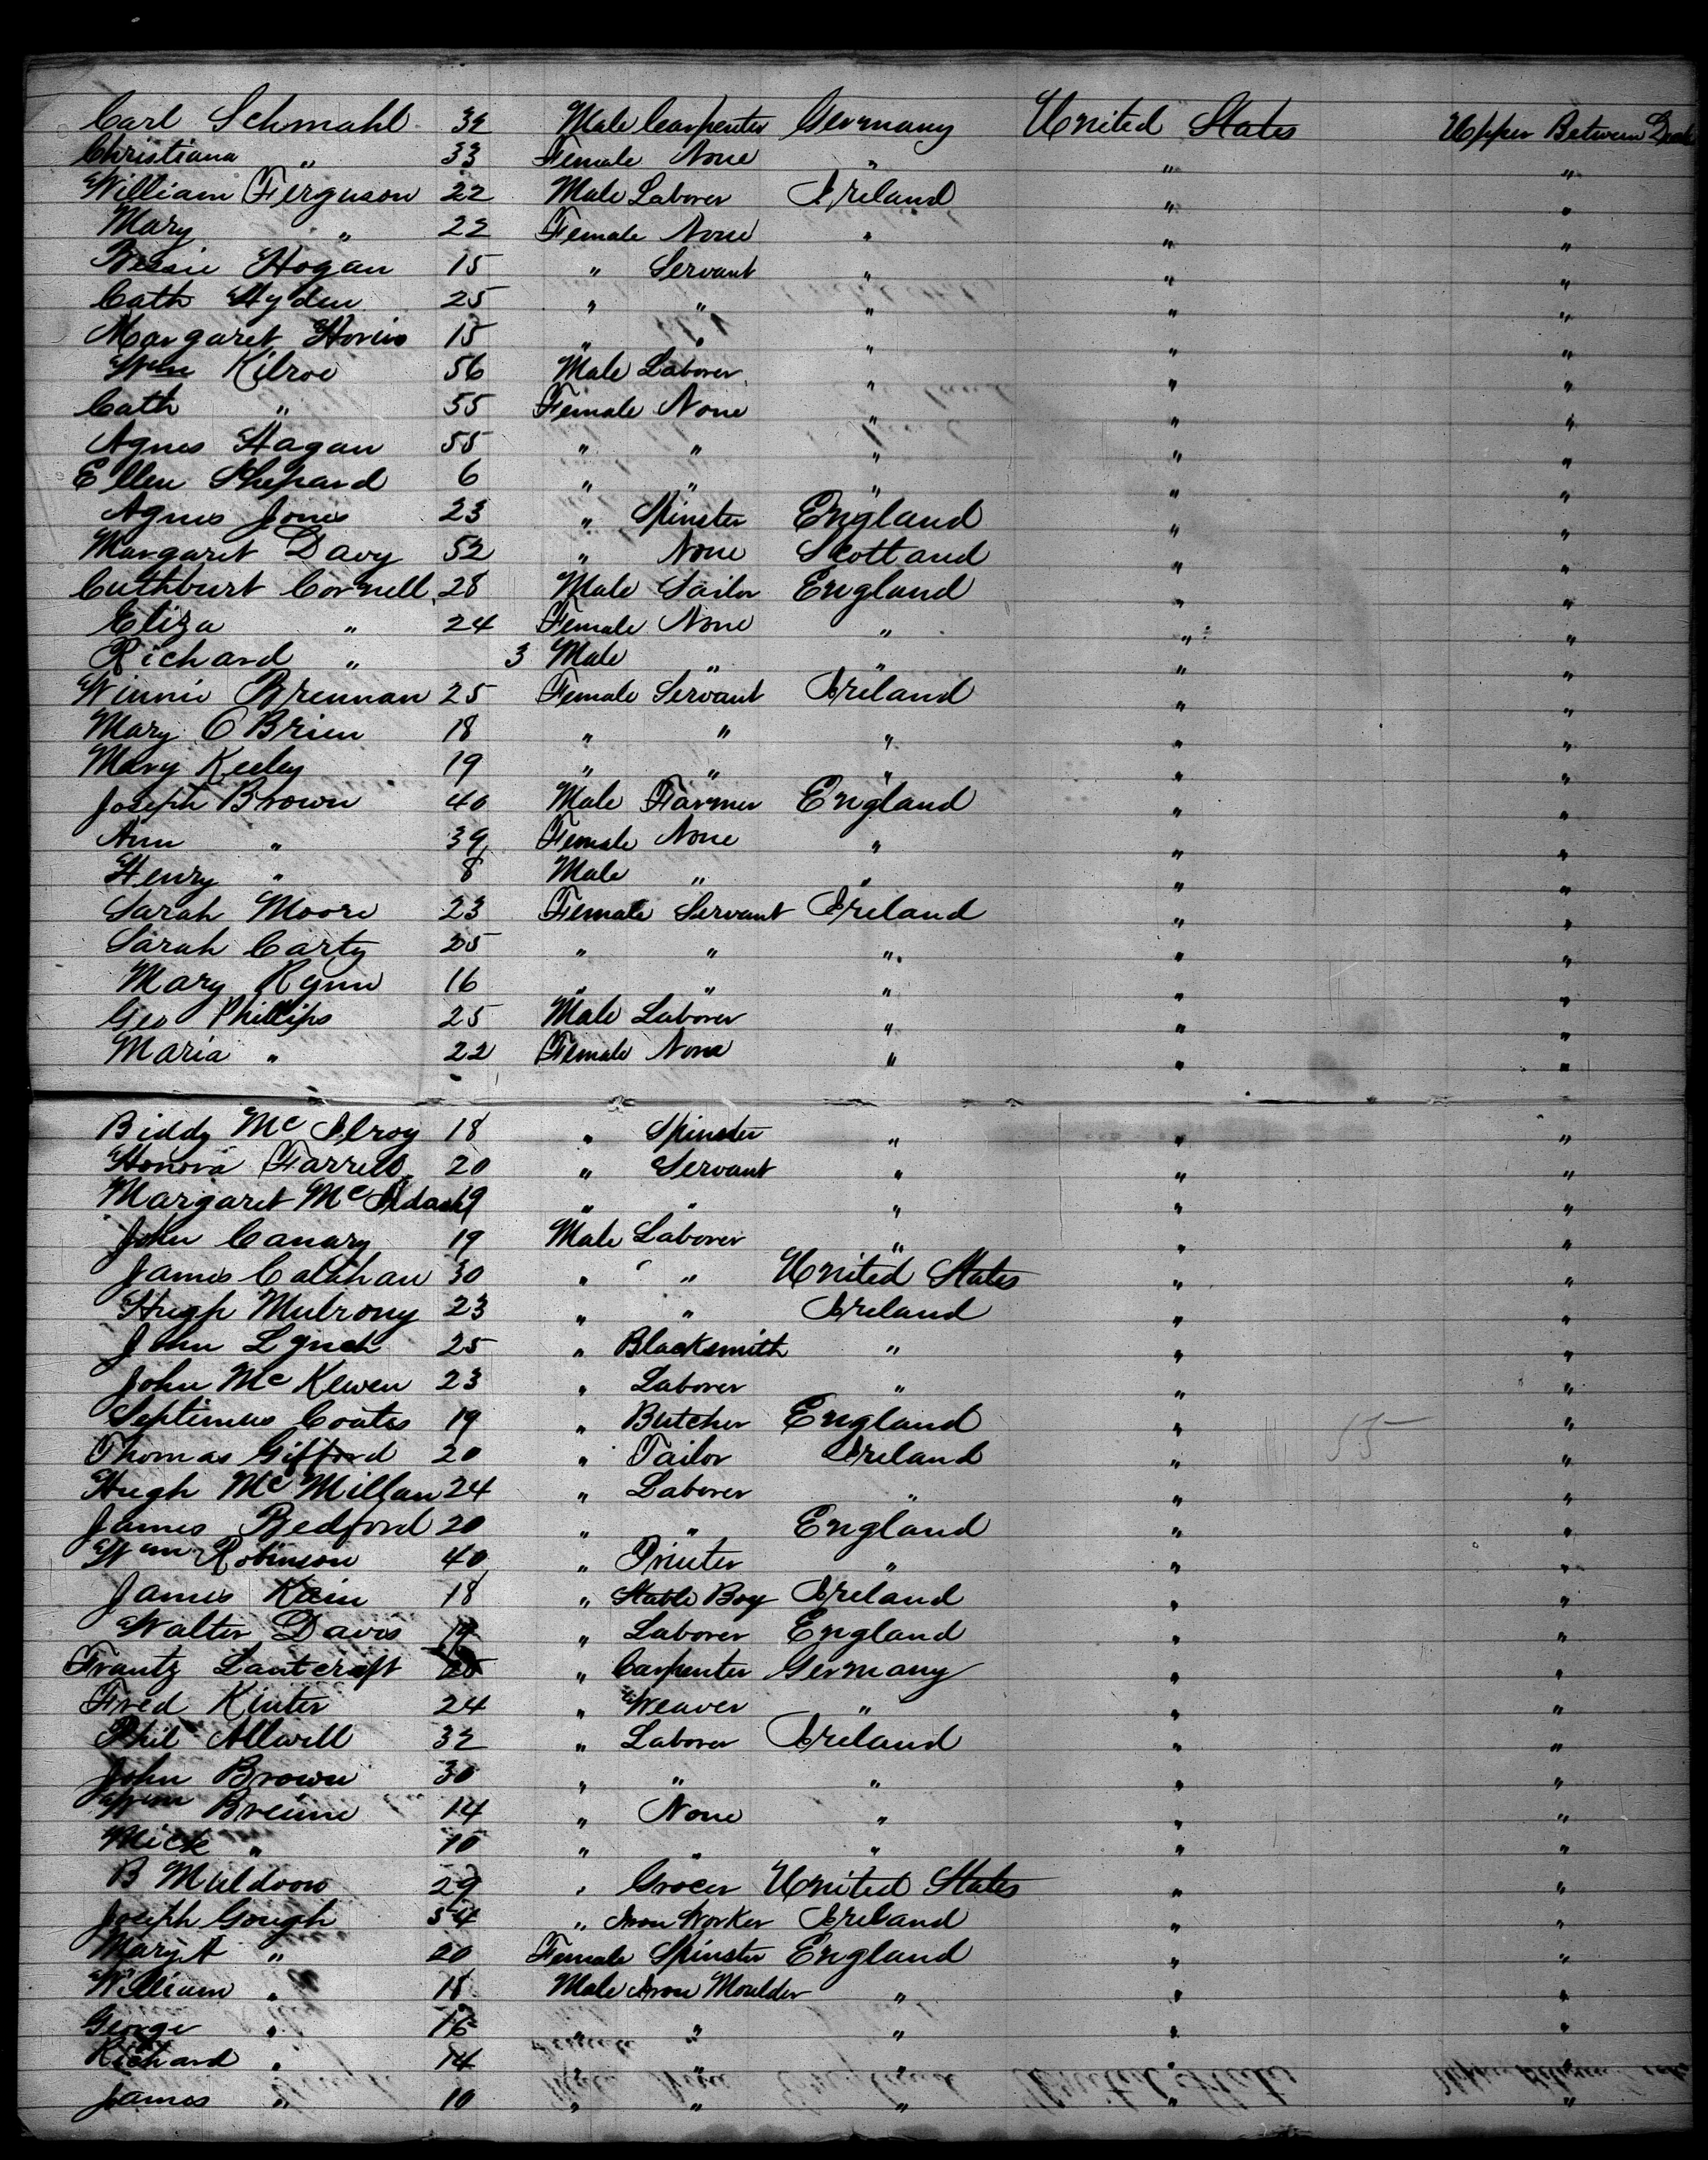 Carl Schmahl 32 Male Carpenter Germany United States Upper Between Deck
Christiana " 33 Female None " " "
William Ferguson 22 Male Laborer Ireland " "
Mary " 22 Female None " " "
Bessie Hogan 15 " Servant " " "
Cath Hyden 25 " " " " "
Margaret 15 " " " " "
Wm Kilroe 56 Male Laborer " " "
Cath " 55 Female None " " "
Agnes Hagan 55 " " " " "
Ellen Shepard 6 " " " " "
Agnes Jones 23 " Spinster England " "
Margaret Davy 52 " None Scotland " "
Cuthburt Cornell 28 Male Sailor England " "
Eliza " 24 Female None " " "
Richard " 3 Male " " " "
Winnie Brennan 25 Female Servant Ireland " "
Mary O Brien 18 " " " " "
Mary Keeley 19 " " " " "
Joseph Brown 40 Male Farmer England " "
Ann " 39 Female None " " "
Henry " 8 Male " " " "
Sarah Moore 23 Female Servant Ireland " "
Sarah Carty 25 " " " " "
Mary Rynn 16 " " " " "
Geo Phillips 25 Male Laborer " " "
Maria " 22 Female None " " "
Biddy Mc Ilroy 18 " Spinster " " "
Honora Farrell 20 " Servant " " "
Margaret Mc 19 " " " " "
John Canary 19 Male Laborer " " "
James Calahan 30 " " United States " "
Hugh Mulrony 23 " " Ireland " "
John Lynch 25 " Blacksmith " " "
John Mc Kewen 23 " Laborer " " "
Septimus Coates 19 " Butcher England " "
Thomas Gifford 20 " Tailor Ireland " "
Hugh Mc Millan 24 " Laborer " " "
James Bedford 20 " " England " "
Wm Robinson 40 " Printer " " "
James Kain 18 " Stable Boy Ireland " "
Walter Davis " Laborer England " "
Frantz Lautcraft " Carpenter Germany " "
Fred Kinter 24 " Weaver " " "
Phil Allwell 32 " Laborer Ireland " "
John Brown 30 " " " " "
Wm Breine 14 " None " " "
Mick " 10 " " " " "
B Muldoon 29 " Grocer United States " "
Joseph Gough 54 " Iron Worker Ireland " "
Mary A " 20 Female Spinster England " "
William " 18 Male Iron Moulder " " "
George " 16 " " " " "
Richard " 14 " " " " "
James " 10 " " " " "